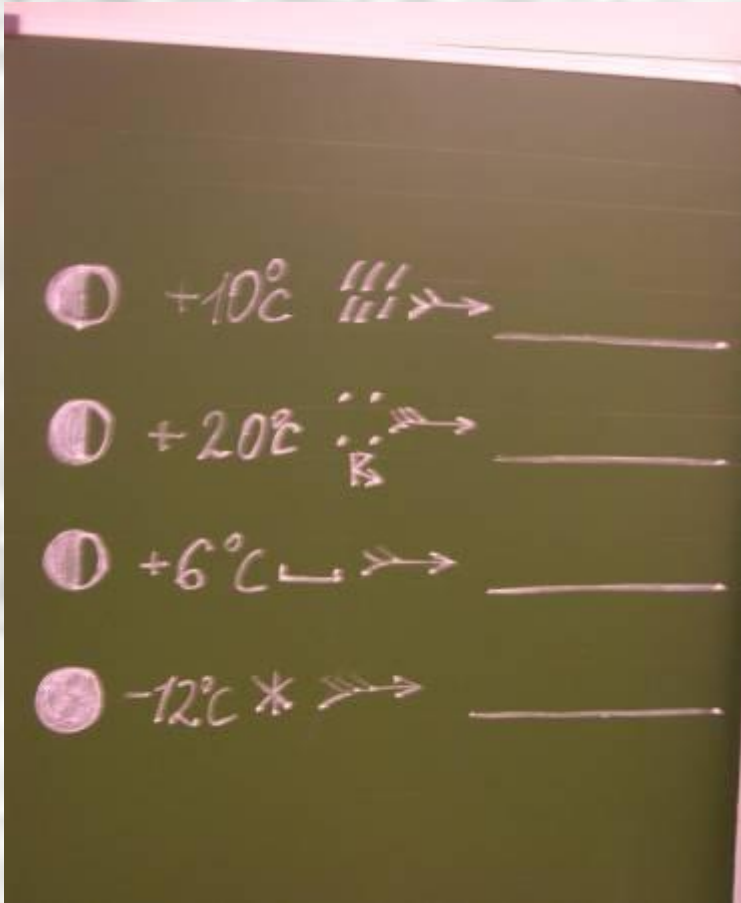 +10°C
+20°C
+6°C
-12°C